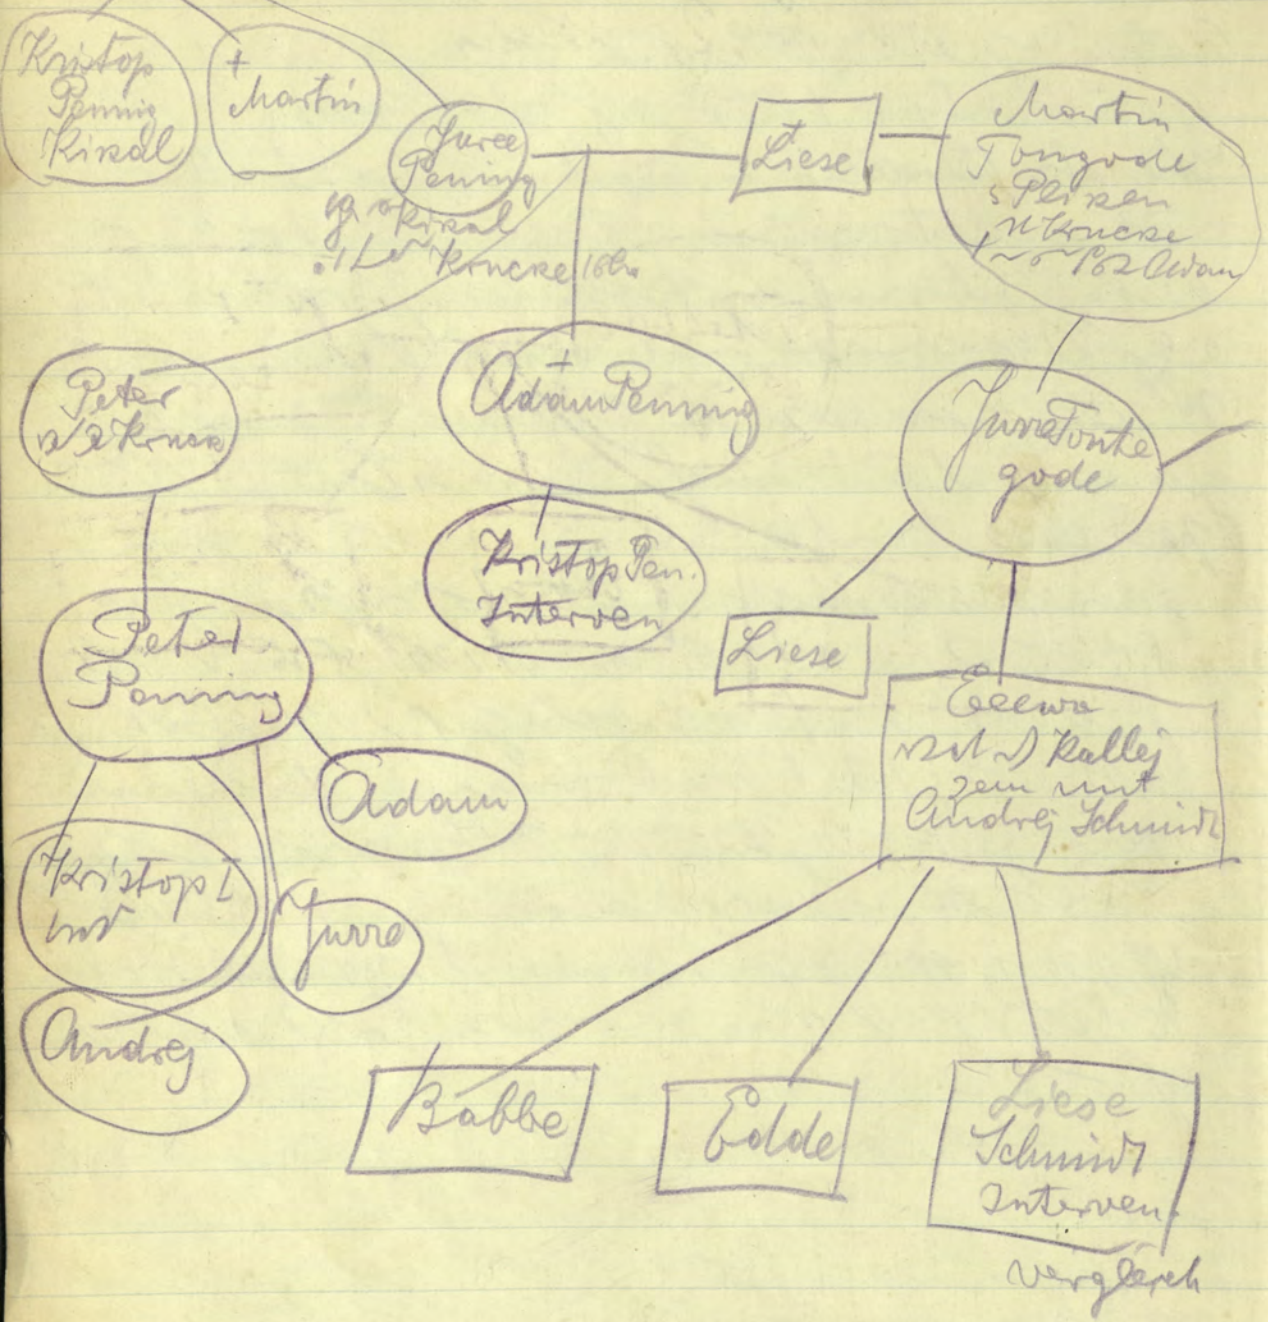 Kristop
Pennig
Kisal
+
Martin
Jurre
Penning
Kisal
Krucke
Liese
Martin
Tongode
s Plisen
Krucke
Peter
Kruck
+
Adam Penning
Jurre Tonte
gode
Kristop Pen.
Interven
Liese
Peter
Penning
Eeewa
Kallej
zem mit
Andrej Schmidt
Adam
Kristop I
Jurre
Andrej
Babbe
Edde
Liese
Schmidt
Interven.
Vergleich